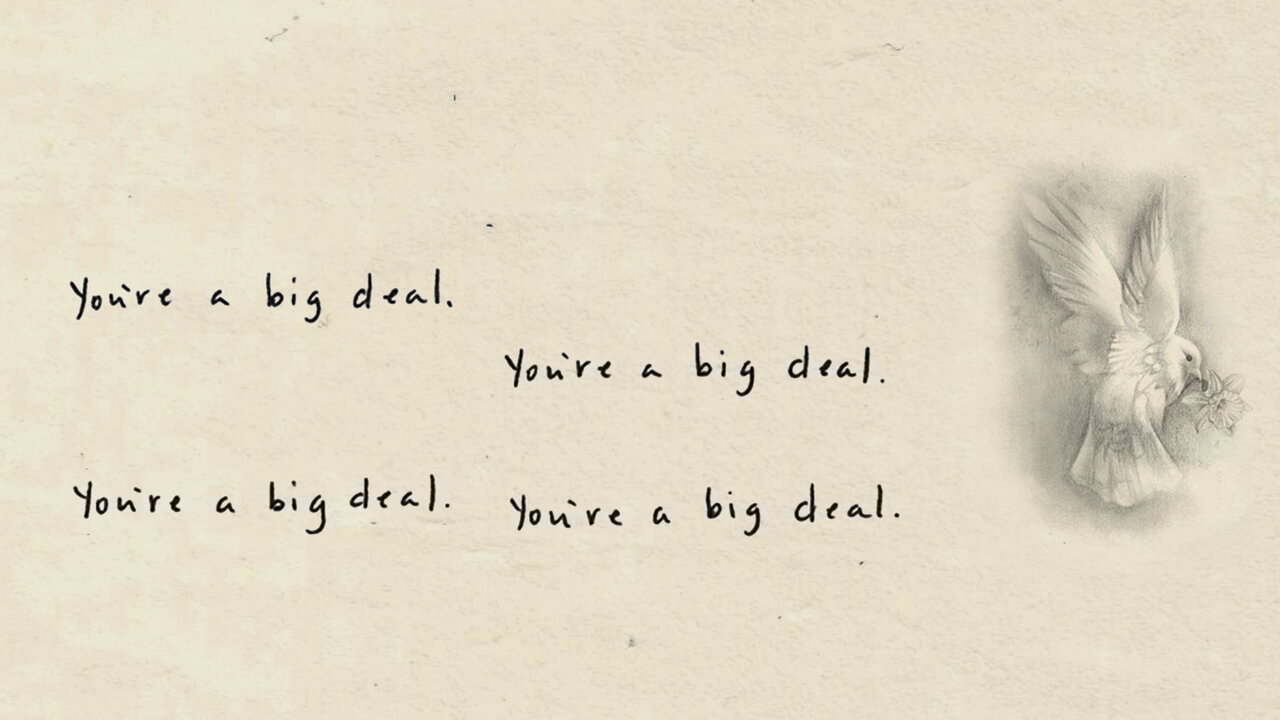 You're a big deal.
You're a big deal.
You're a big deal.
You're a big deal.